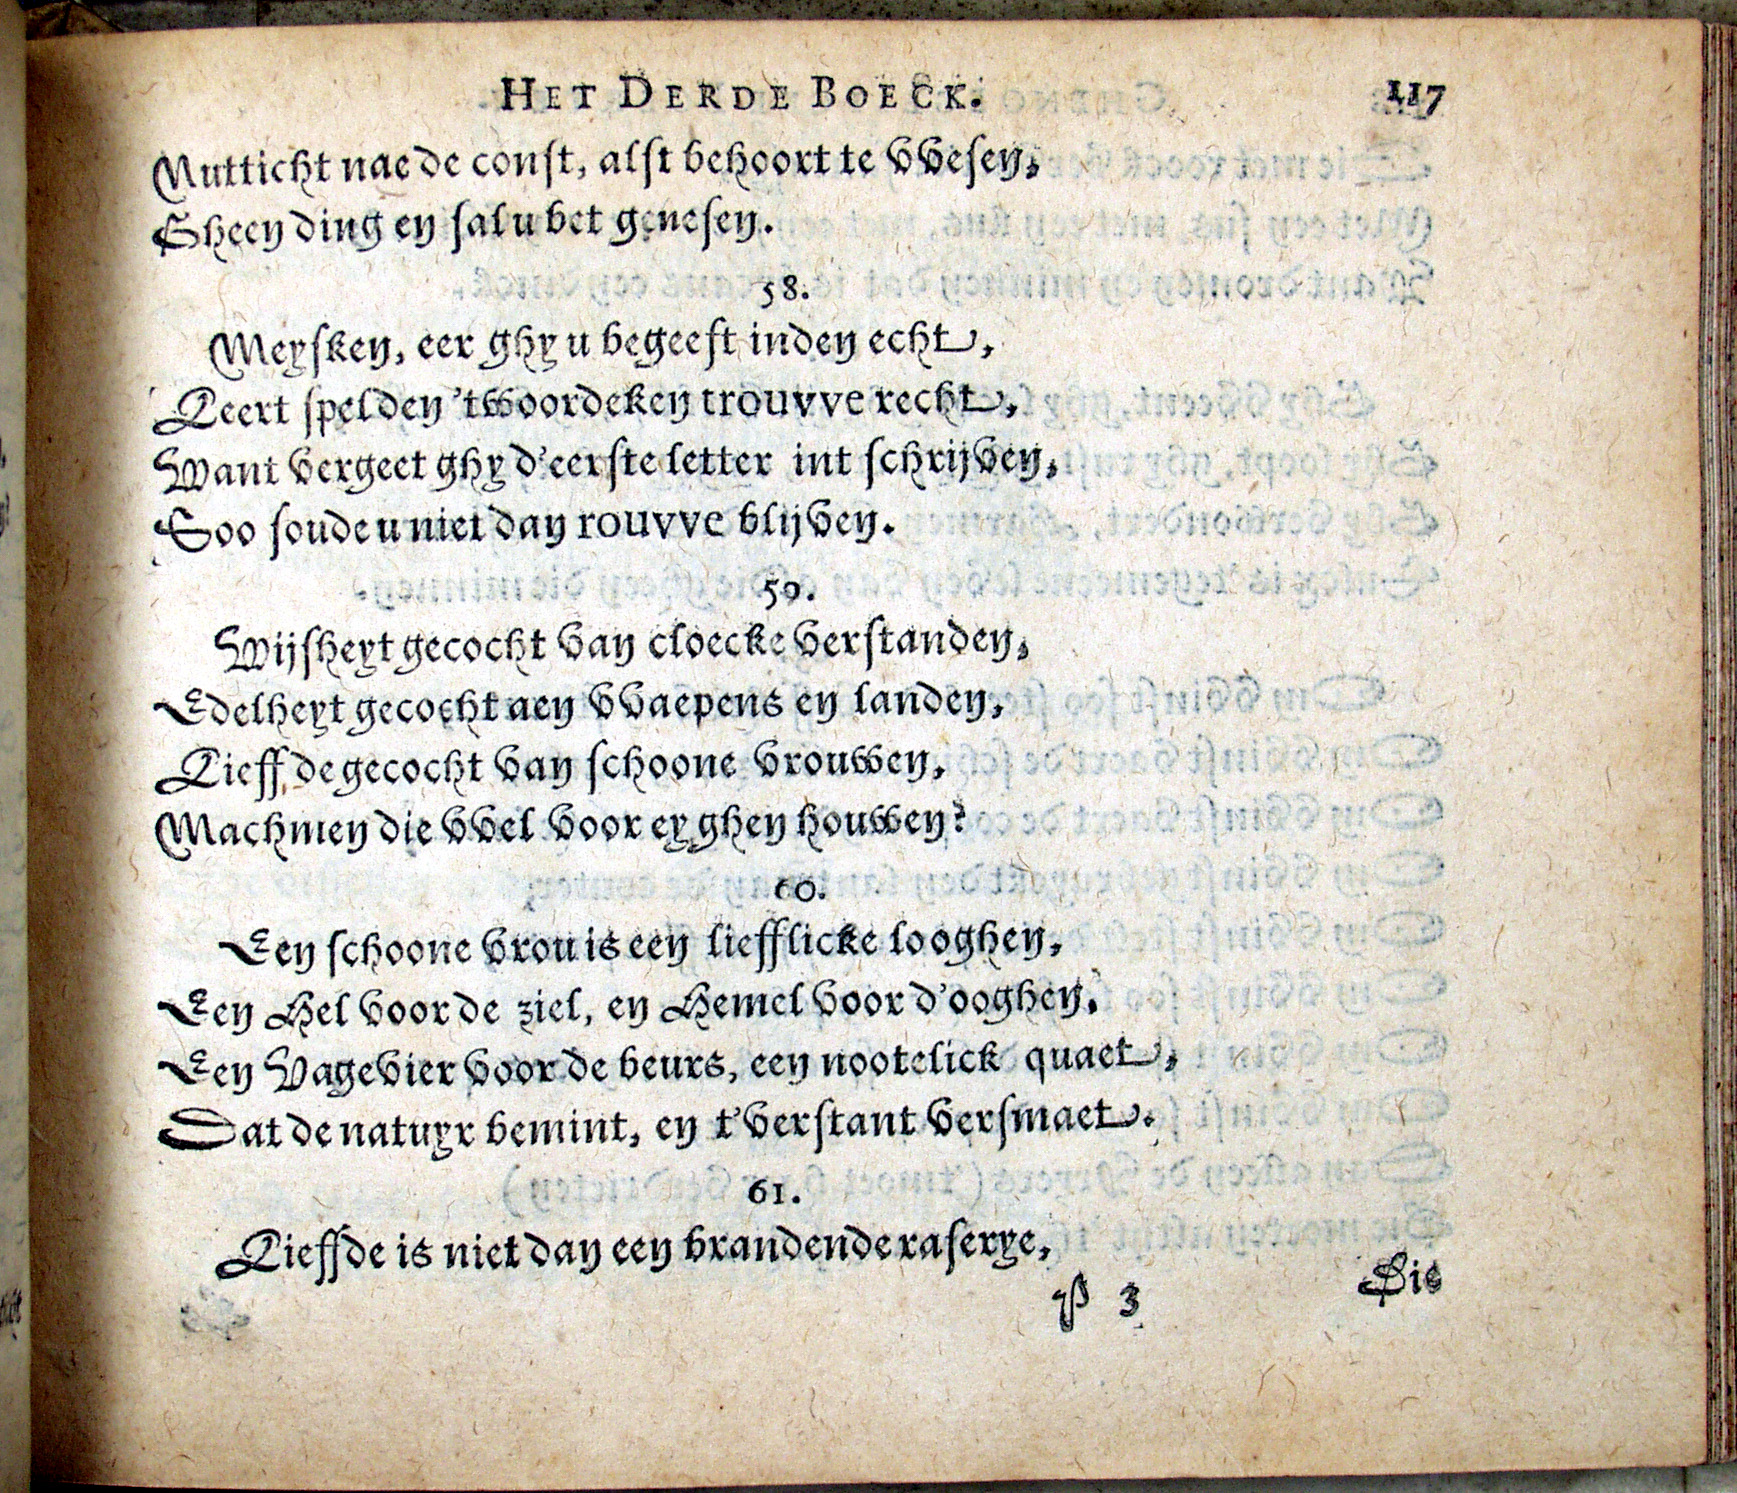 HET DERDE BOECK. 117
Nutticht nae de const, alst behoort te wesen,
Gheen ding en sal u bet genesen.
58.
Meysken, eer ghy u begeeft inden echt,
Leert spelden 'twoordeken trouwe recht,
Want vergeet ghy d'eerste letter int schrijven,
Soo soude u niet dan rouwe blijven.
59.
Wijsheyt gecocht van cloecke verstanden,
Edelheyt gecocht aen waepens en landen,
Lieffde gecocht van schoone vrouwen,
Machmen die wel voor eyghen houwen?
60.
Een schoone vrou is een liefflicke looghen,
Een Hel voor de ziel, en Hemel voor d'ooghen,
Een Vagevier voor de beurs, een nootelick quaet,
Dat de natuyr bemint, en t'verstant versmaet.
61.
Lieffde is niet dan een brandende raserye,
P 3 Die